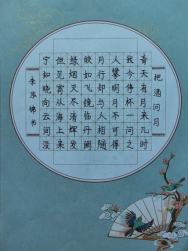 把酒问月
青天有月来几时
我今停杯一问之
人攀明月不可得
月行却与人相随
皎如飞镜临丹阙
绿烟灭尽清辉发
但见宵从海上来
宁知晓向云间没